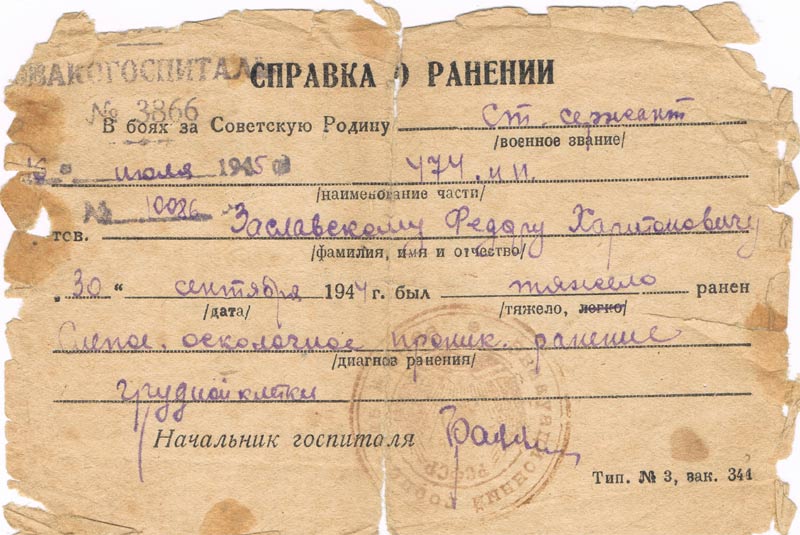 ЭВАКОГОСПИТАЛЬ СПРАВКА О РАНЕНИИ
№ 3866
В боях за Советскую Родину ст. сержант
/военное звание/
" июля 1945 г 474. п.п.
/наименование части/
№ 10086
тов. Заславскому Федору Харитоновичу
/фамилия, имя и отчество/
„30“ сентября 1944 г. был тяжело ранен
/дата/ /тяжело, легко/
Слепое осколочное проник. ранение
/диагноз ранения/
грудной клетки
Начальник госпиталя
РСФСР
Тип. № 3, зак. 344